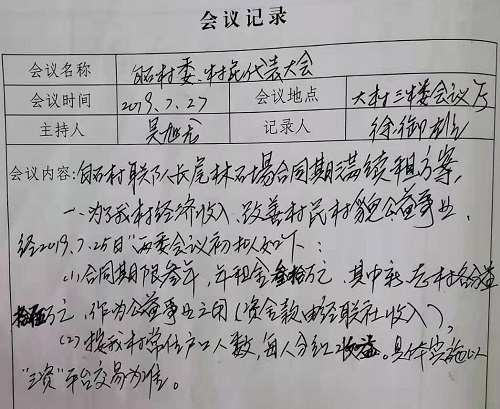 会议记录
会议名称 石村委、村民代表大会
会议时间 2019.7.27 会议地点 大村三楼会议厅
主持人 吴旭 记录人 徐御
会议内容: 石村联队长尾林石场合同期满续租方案,
一、为了我村经济收入、改善村民村貌公益事业,
经2019.7.25日"两委会议初拟如下:
(1)合同期限叁年,年租金叁拾万元,其中新、老村各分
万元,作为公益事业之用(资金款由经联社收入),
(2)按我村常住户口人数,每人分红收益。具体实施以
"三资"平台交易为准。